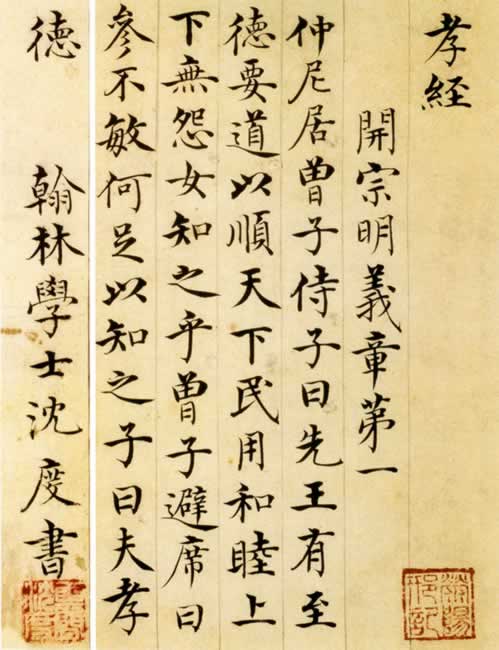 孝经
開宗明義章苐一
仲尼居曾子侍子曰先王有至
德要道以順天下民用和睦上
下無怨女知之乎曾子避席曰
參不敏何足以知之子曰夫孝
德
翰林學士沈度書